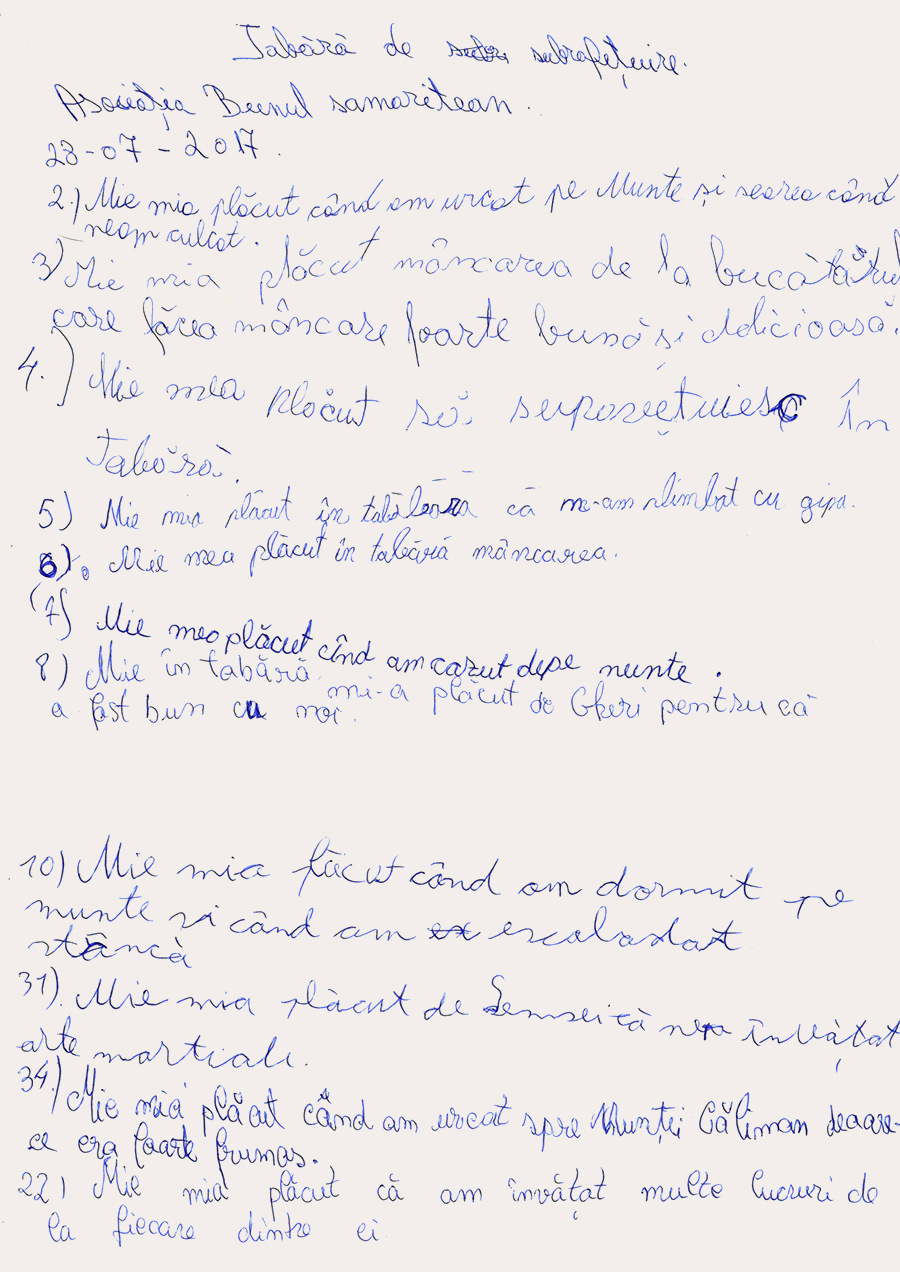 Tabără de subrafețuire.
Asociația Bunul samaritean.
28-07-2017.
2.) Mie mia plăcut când am urcat pe Munte și searea când
neam culcat.
3) Mie mia plăcut mâncarea de la bucătărul
care făcea mâncare foarte bună și ddicioasă.
4.) Mie mea plăcut să supravețuiesc în
Tabără.
5) Mie mia plăcut în tabără că ne-am plimbat cu gipu.
6). Mie mea plăcut în tabără mâncarea.
(7) Mie meo plăcut cînd am cazut depe munte.
8) Mie în tabără mi-a plăcut de Gheri pentru că
a fost bun cu noi.
10) Mie mia făcut când am dormit pe
munte și când am escaladat
stâncă
31). Mie mia plăcut de Semsei că nea învățat
arte martiale.
34.) Mie mia plăcut când am urcat spre Munții Căliman deoare-
ce era foarte frumos.
22) Mie mia plăcut că am învățat multe lucruri de
la fiecare dintre ei